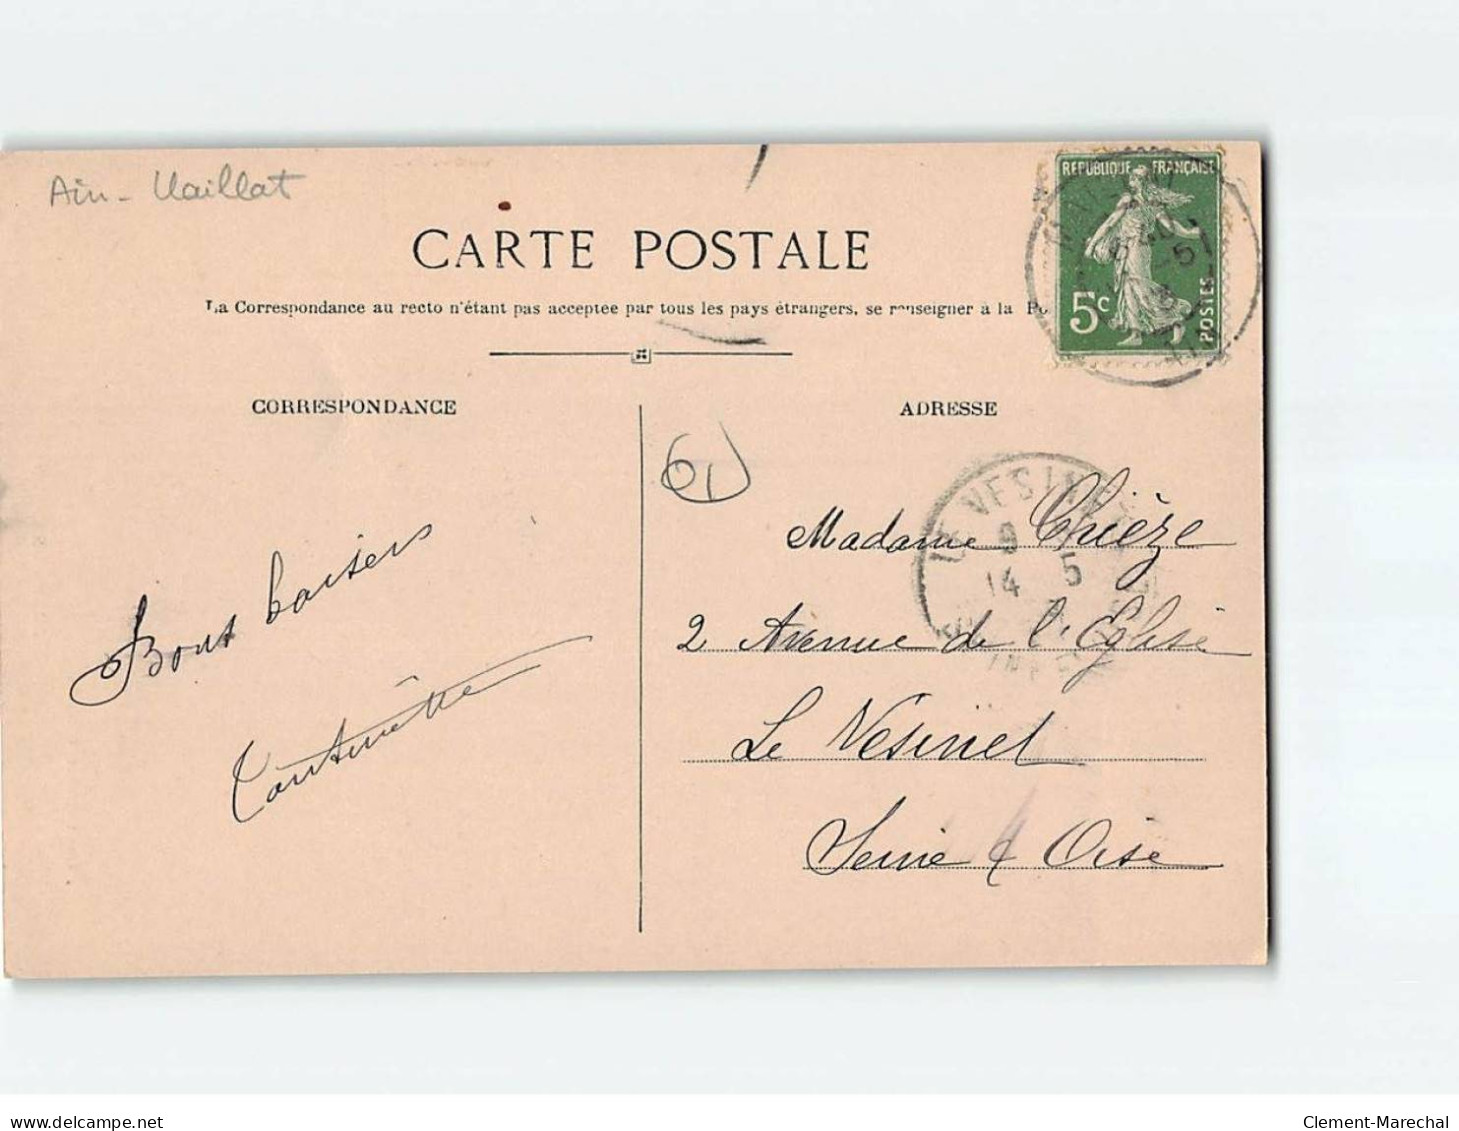 Ain - Vaillat
CARTE POSTALE
La Correspondance au recto n'étant pas acceptee par tous les pays étrangers, se renseigner à la Po
REPUBLIQUE FRANÇAISE
5c
POSTES
CORRESPONDANCE
ADRESSE
01
LE VESINET
9
14 5
Madame Chièze
2 Avenue de l'Eglise
Le Vesinet
Seine & Oise
Bons baisers
delcampe.net
Clement-Marechal